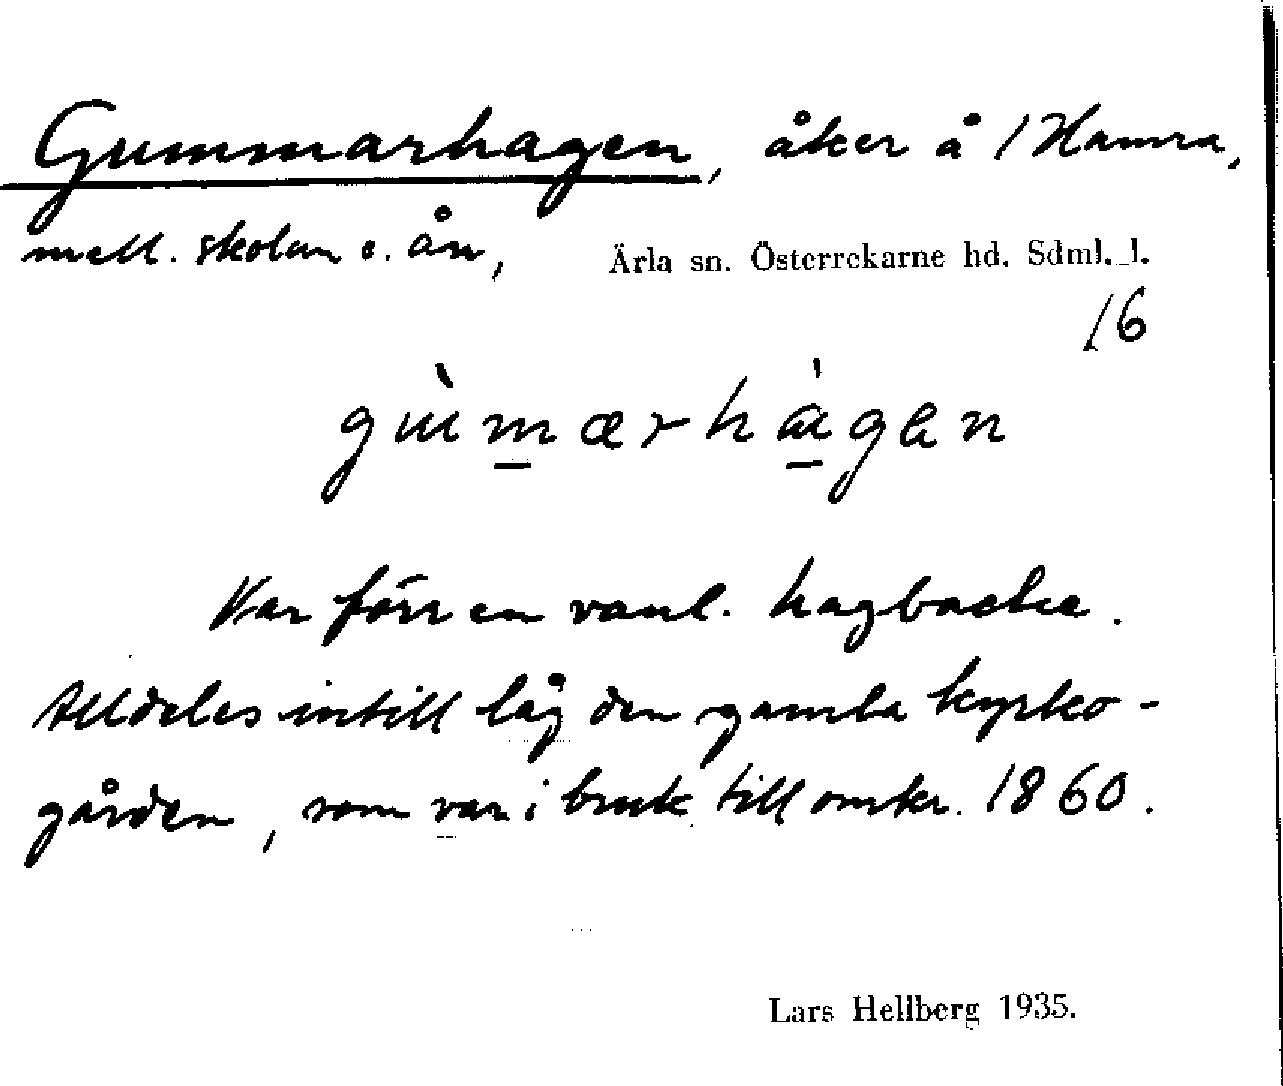 Gummarhagen, åker å /Hamra,
mell. skolan o. ån, Ärla sn. Österrekarne hd. Sdml. l.
/6
gùmærhàgen
Var förr en vanl. hagbacke.
Alldeles intill låg den gamla kyrko-
gården, som var i bruk till omkr. 1860.
Lars Hellberg 1935.